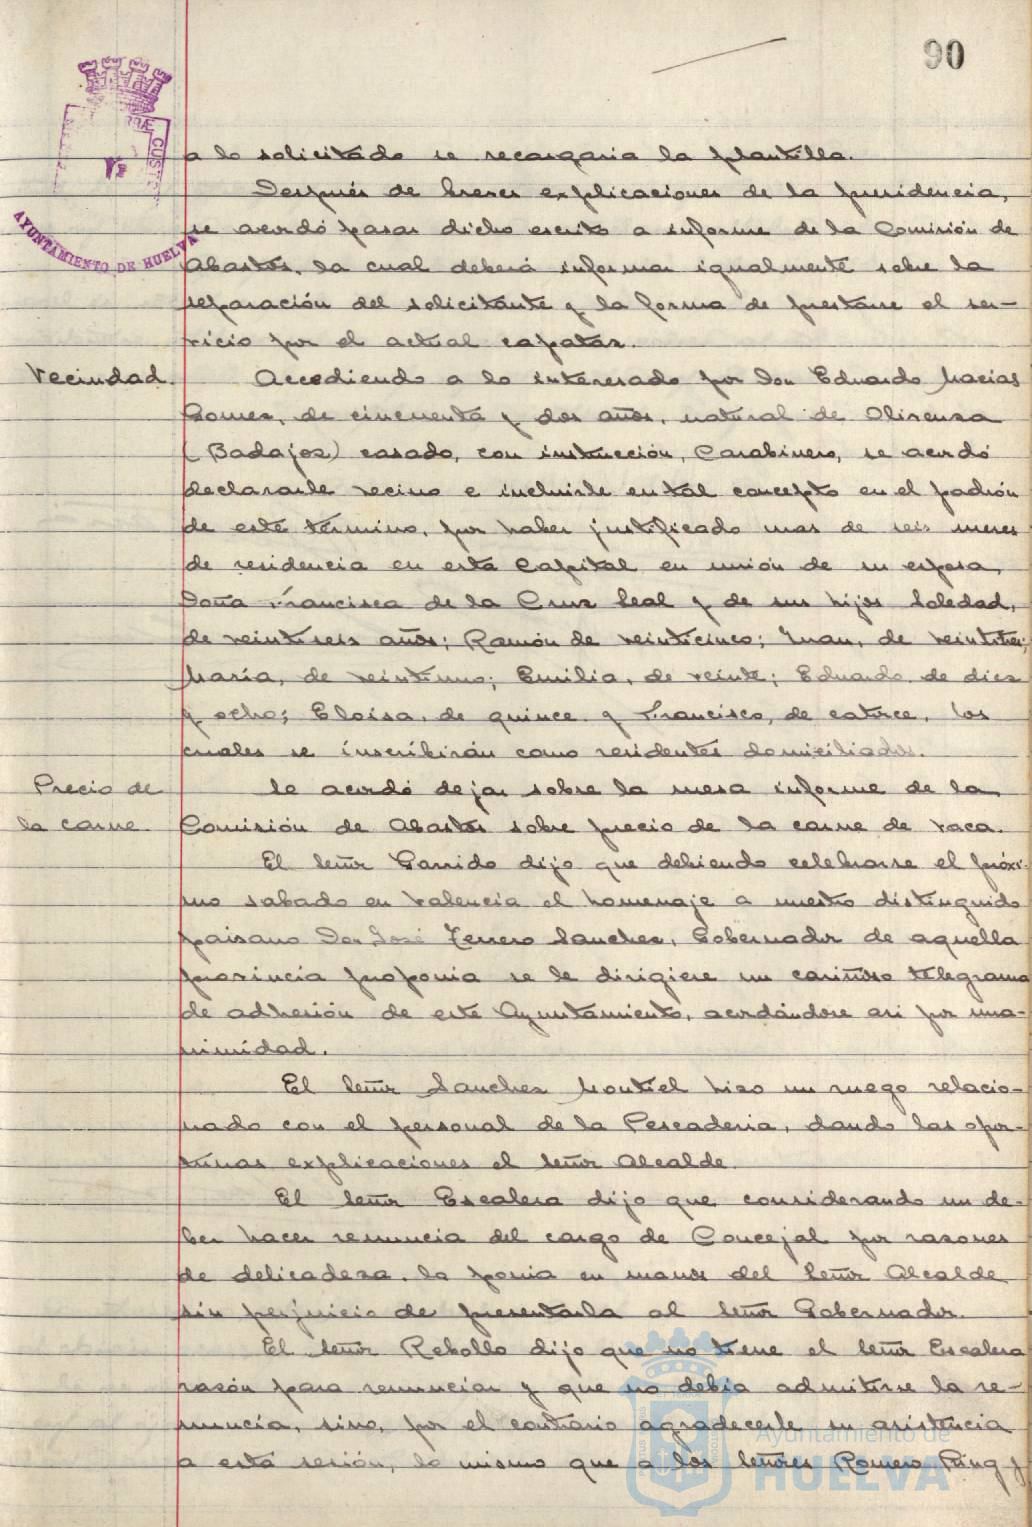 90
AYUNTAMIENTO DE HUELVA
a lo solicitado se recargaria la plantilla.
Después de breves explicaciones de la presidencia,
se acordó pasar dicho escrito a informe de la Comisión de
Abastos, la cual deberá informar igualmente sobre la
separación del solicitante y la forma de prestarse el ser-
vicio por el actual capataz.
Vecindad. Accediendo a lo interesado por Don Eduardo Macias
Gomez, de cincuenta y dos años, natural de Olivenza
(Badajoz) casado, con instrucción, Carabinero, se acordó
declararle vecino e incluirle en tal concepto en el padrón
de este término, por haber justificado mas de seis meses
de residencia en esta Capital en unión de su esposa,
Doña Francisca de la Cruz Leal y de sus hijos Soledad,
de veintiseis años; Ramón de veinticinco; Juan, de veintitres;
María, de veintiuno; Emilia, de veinte; Eduardo, de diez
y ocho; Eloisa, de quince y Francisco, de catorce, los
cuales se inscribirán como residentes domiciliados.
Precio de Se acordó dejar sobre la mesa informe de la
la carne. Comisión de Abastos sobre precio de la carne de vaca.
El Señor Garrido dijo que debiendo celebrarse el próxi-
mo sabado en Valencia el homenaje a nuestro distinguido
paisano Don José Terrero Sanchez, Gobernador de aquella
provincia proponia se le dirigiese un cariñoso telegrama
de adhesión de este Ayuntamiento, acordándose asi por una-
nimidad.
El Señor Sanchez Montiel hizo un ruego relacio-
nado con el personal de la Pescaderia, dando las opor-
tunas explicaciones el Señor Alcalde.
El Señor Escalera dijo que considerando un de-
ber hacer renuncia del cargo de Concejal por razones
de delicadeza, la ponia en manos del Señor Alcalde
sin perjuicio de presentarla al Señor Gobernador.
El Señor Rebollo dijo que no tiene el Señor Escalera
razón para renunciar y que no debia admitirse la re-
nuncia, sino, por el contrario agradecerle su asistencia
a esta sesión, lo mismo que a los Señores Romero Ring y
Ayuntamiento de
HUELVA